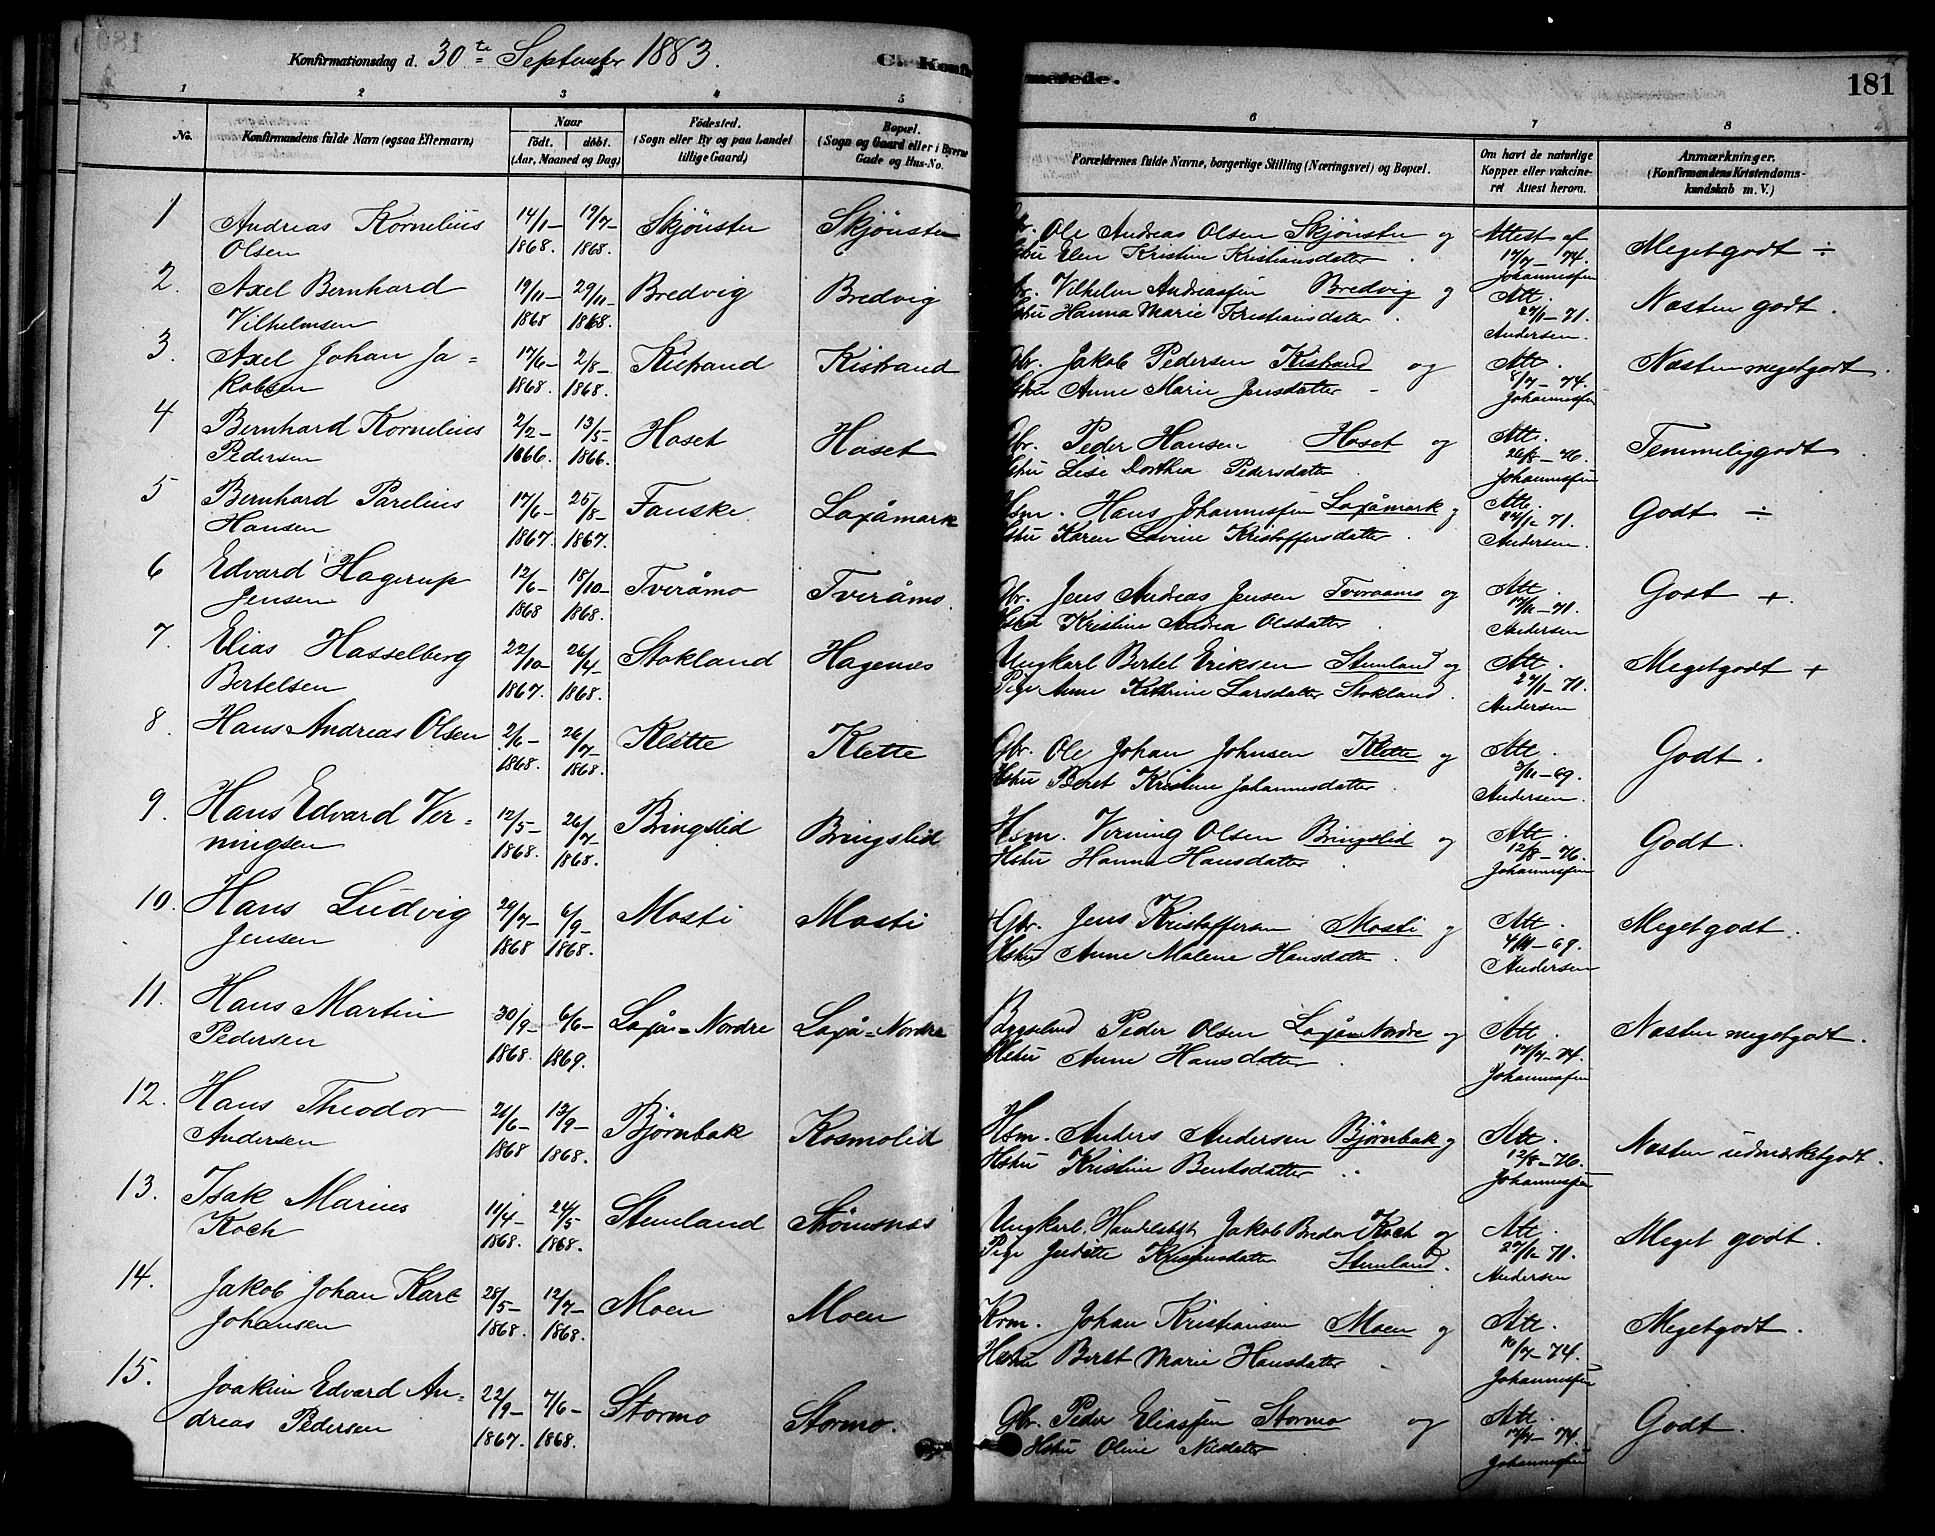 Konfirmationsdag d. 30te September 1883.
181
1 2 3 4 5 6 7 8
No. Konfirmandens fulde Navn (ogsaa Efternavn) Naar født. døbt. (Aar, Maaned og Dag) Fødested. (Sogn eller By og paa Landet tillige Gaard) Bopæl. (Sogn og Gaard eller i Byerne Gade og Hus-No. Forældrenes fulde Navne, borgerlige Stilling (Næringsvei) og Bopæl. Om havt de naturlige Kopper eller vakcineret Attest herom. Anmærkninger. (Konfirmandens Kristendomskundskab m. V.)
1 Andreas Kornelius 14/1- 19/7- Skjönstu Skjönstu Gbr. Ole Andreas Olsen Skjönstu og Attest af Megetgodt ÷
Olsen 1868. 1868. Hstru Elen Kristine Kristiansdatter. 17/7-74. Johannessen
2. Axel Bernhard 19/11- 29/11- Bredvig Bredvig Gbr. Vilhelm Andreassen Bredvig og Att. Næsten godt.
Vilhelmsen 1868 1868. Hstru Hanna Marie Kristiansdatter. -71. Andersen.
3. Axel Johan Ja- 17/6- 2/8- Kistrand Kistrand Gbr. Jakob Pedersen Kistrand og Att. Næsten megetgodt.
kobsen 1868. 1868. Hstru Anne Marie Jensdatter - 8/7-74. Johannessen
4 Bernhard Kornelius 2/2- 13/5- Hoset Hoset Gbr. Peder Hansen Hoset og Att. Temmeliggodt.
Pedersen 1866. 1866. Hstru Lise Dorthea Pedersdatter. 26/8-76. Johannessen
5 Bernhard Parelius 17/6- 25/8- Fauske Laxåmark Hsm. Hans Johannessen Laxåmark og Att. Godt ÷
Hansen 1867. 1867. Hstru Karen Lovine Kristoffersdatter. -71. Andersen.
6 Edvard Hagerup 12/6- 18/10- Tveråmo Tveråmo. Gbr. Jens Andreas Jensen Tveraamo og Att. Godt +.
Jensen 1868 1868. Hstru Kristine Andrea Olsdatter. -71. Andersen
7. Elias Hasselberg 22/10- 26/4- Stokland Hagenes Ungkarl Bertel Eriksen Stemland og Att. Megetgodt +
Bertelsen 1867. 1868. Pige Anne Kathrine Larsdatter Stokland. -71. Andersen
8. Hans Andreas Olsen 2/6- 26/7- Klette Klette Gbr. Ole Johan Johnsen Klette og Att. Godt.
1868. 1868. Hstru Beret Kristine Johannesdatter. -69. Andersen.
9. Hans Edvard Ver- 12/5- 26/7- Bringslid Bringslid Hsm. Verning Olsen Bringslid og Att. Godt.
ningsen 1868. 1868. Hstru Hanna Hansdatter. 12/8-76. Johannessen
10. Hans Ludvig 29/7- 6/9- Mosti Mosti Gbr. Jens Kristoffersen Mosti og Att. Megetgodt.
Jensen 1868 1868. Hstru Anne Malene Hansdatter. -69. Andersen
11. Hans Martin 30/9- 6/6- Laxå=Nordre Laxå=Nordre Peder Olsen Laxå=Nordre og Att. Næsten megetgodt.
Pedersen 1868. 1869. Hstru Anne Hansdatter. 17/7-74. Johannessen
12. Hans Theodor 26/6- 13/9- Bjørnbak Kosmolid Hsm. Anders Andersen Bjørnbak og Att. Næsten udmærketgodt.
Andersen 1868 1868. Hstru Kristine Bentsdatter. 12/8-76. Johannessen
13. Isak Marius 11/4- 24/5- Stemland Stömsnæs Ungkarl. Jakob Breder Koch og Att. Meget godt.
Koch 1868. 1868. Pige Judithe Kristensdatter Stemland. -71. Andersen
14. Jakob Johan Karl 28/5- 12/7- Moen Moen Krm. Johan Kristiansen Moen og Att. Megetgodt.
Johansen 1868. 1868. Hstru Beret Marie Hansdatter. 10/7-74. Johannessen
15. Joakim Edvard An- 22/9- 7/6- Stormo Stormo. Gbr. Peder Eliassen Stormo og Att. Godt.
dreas Pedersen 1867. 1868. Hstru Oline Nilsdatter. 17/7-74. Johannessen